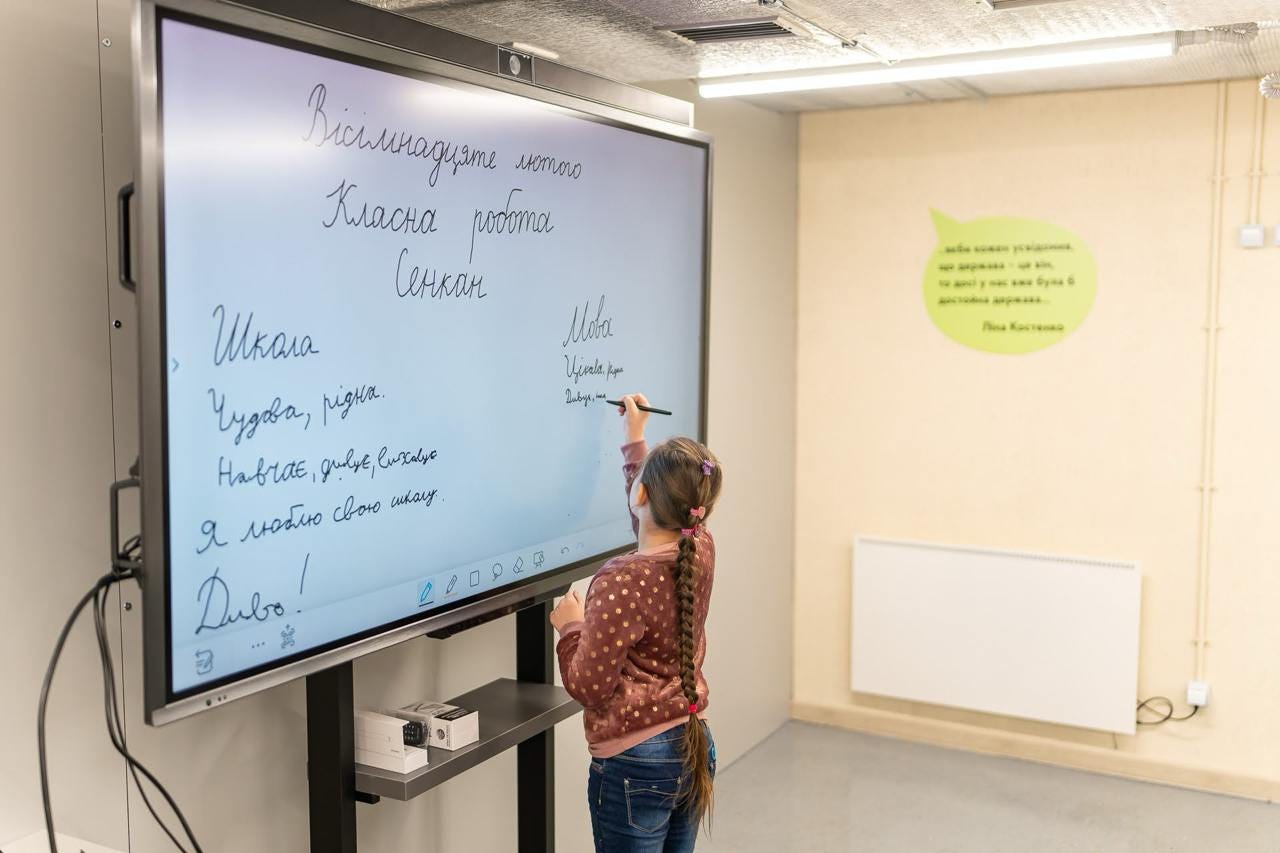 Вісімнадцяте лютого
Класна робота
Сенкан
Школа
Чудова, рідна.
Навчає, дивує, виховує
Я люблю свою школу.
Диво!
Мова
Цікава, рідна
Дивує,
...якби кожен усвідомив,
що держава – це він,
то досі у нас вже була б
достойна держава...
Ліна Костенко